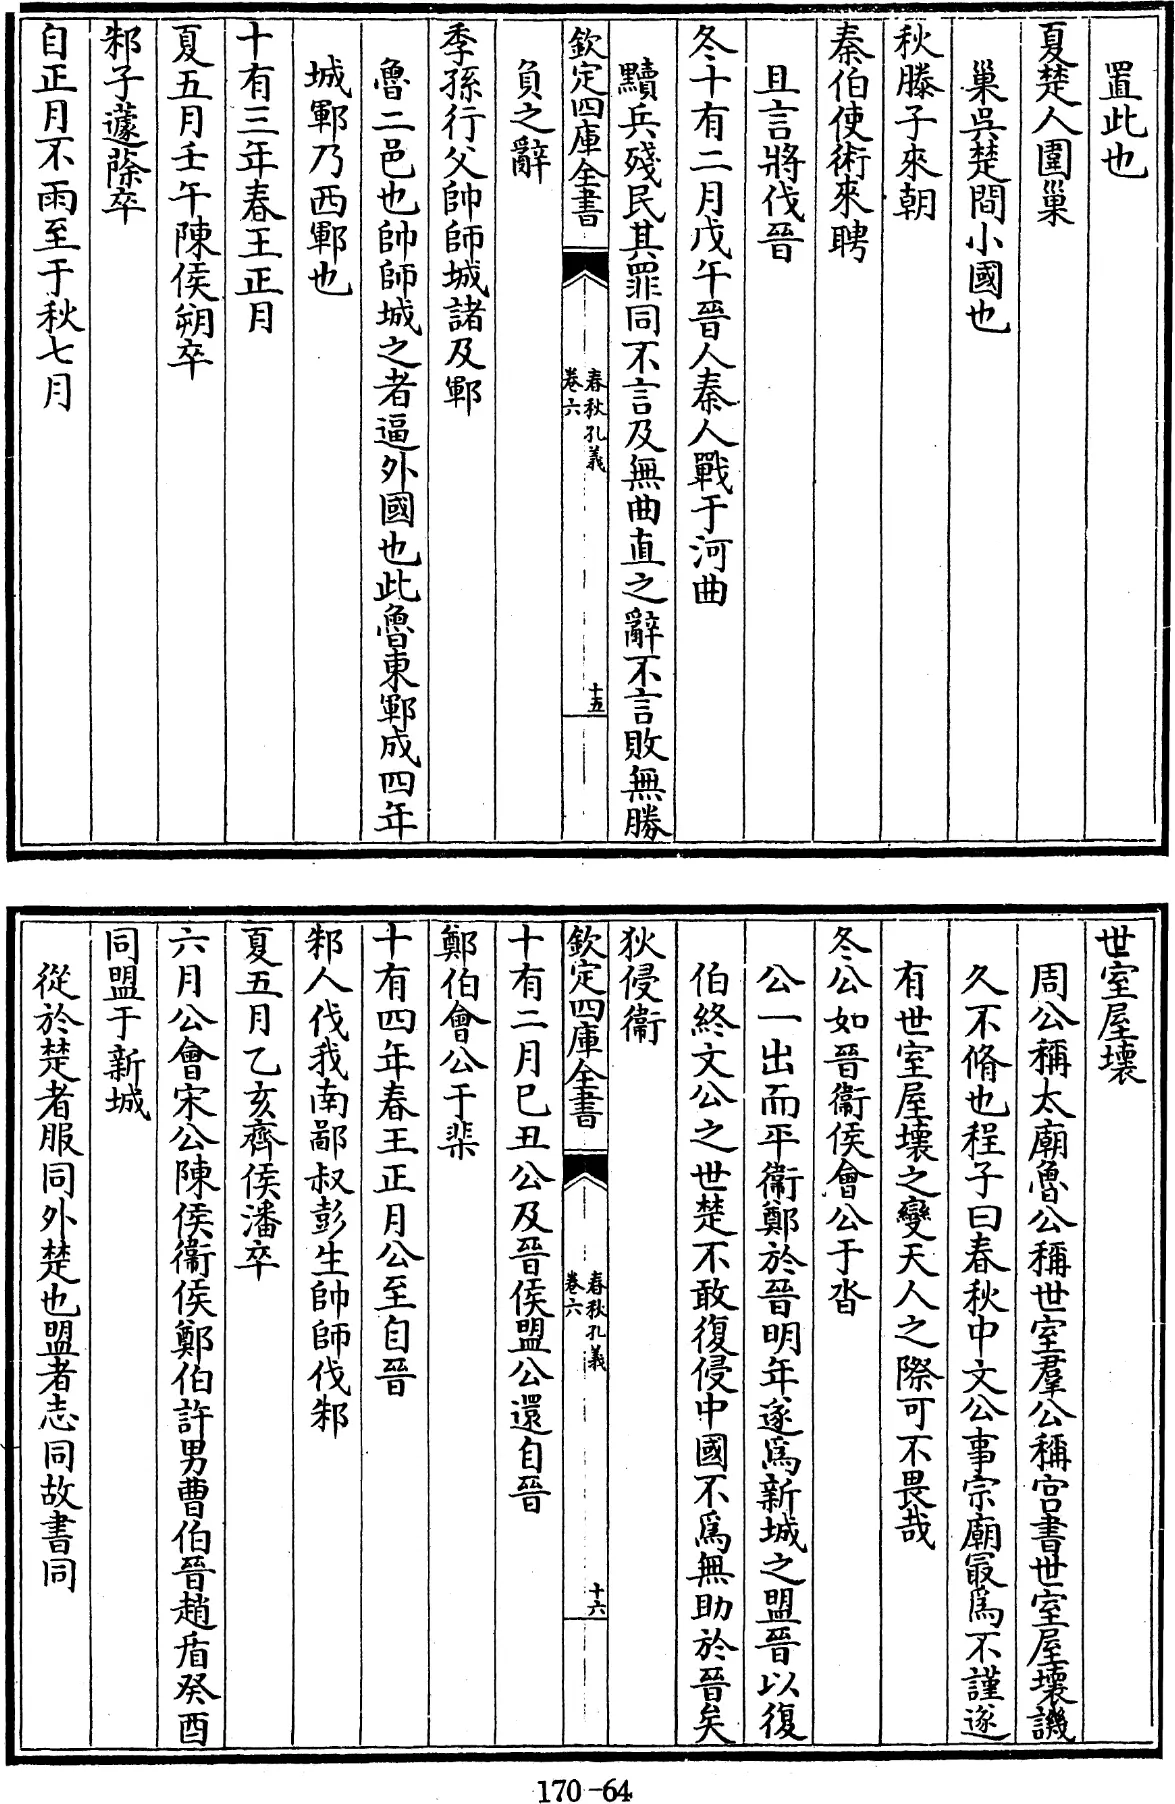 置此也
夏楚人圍巢
巢吳楚間小國也
秋滕子來朝
秦伯使術來聘
且言將伐晉
冬十有二月戊午晉人秦人戰于河曲
黷兵殘民其罪同不言及無曲直之辭不言敗無勝
欽定四庫全書
春秋孔義
卷六
十五
負之辭
季孫行父帥師城諸及鄆
魯二邑也帥師城之者逼外國也此魯東鄆成四年
城鄆乃西鄆也
十有三年春王正月
夏五月壬午陳侯朔卒
邾子蘧蒢卒
自正月不雨至于秋七月
世室屋壞
周公稱太廟魯公稱世室羣公稱宮書世室屋壞譏
久不脩也程子曰春秋中文公事宗廟最爲不謹遂
有世室屋壞之變天人之際可不畏哉
冬公如晉衞侯會公于沓
公一出而平衞鄭於晉明年遂爲新城之盟晉以復
伯終文公之世楚不敢復侵中國不爲無助於晉矣
狄侵衞
欽定四庫全書
春秋孔義
卷六
十六
十有二月巳丑公及晉侯盟公還自晉
鄭伯會公于棐
十有四年春王正月公至自晉
邾人伐我南鄙叔彭生帥師伐邾
夏五月乙亥齊侯潘卒
六月公會宋公陳侯衞侯鄭伯許男曹伯晉趙盾癸酉
同盟于新城
從於楚者服同外楚也盟者志同故書同
170-64